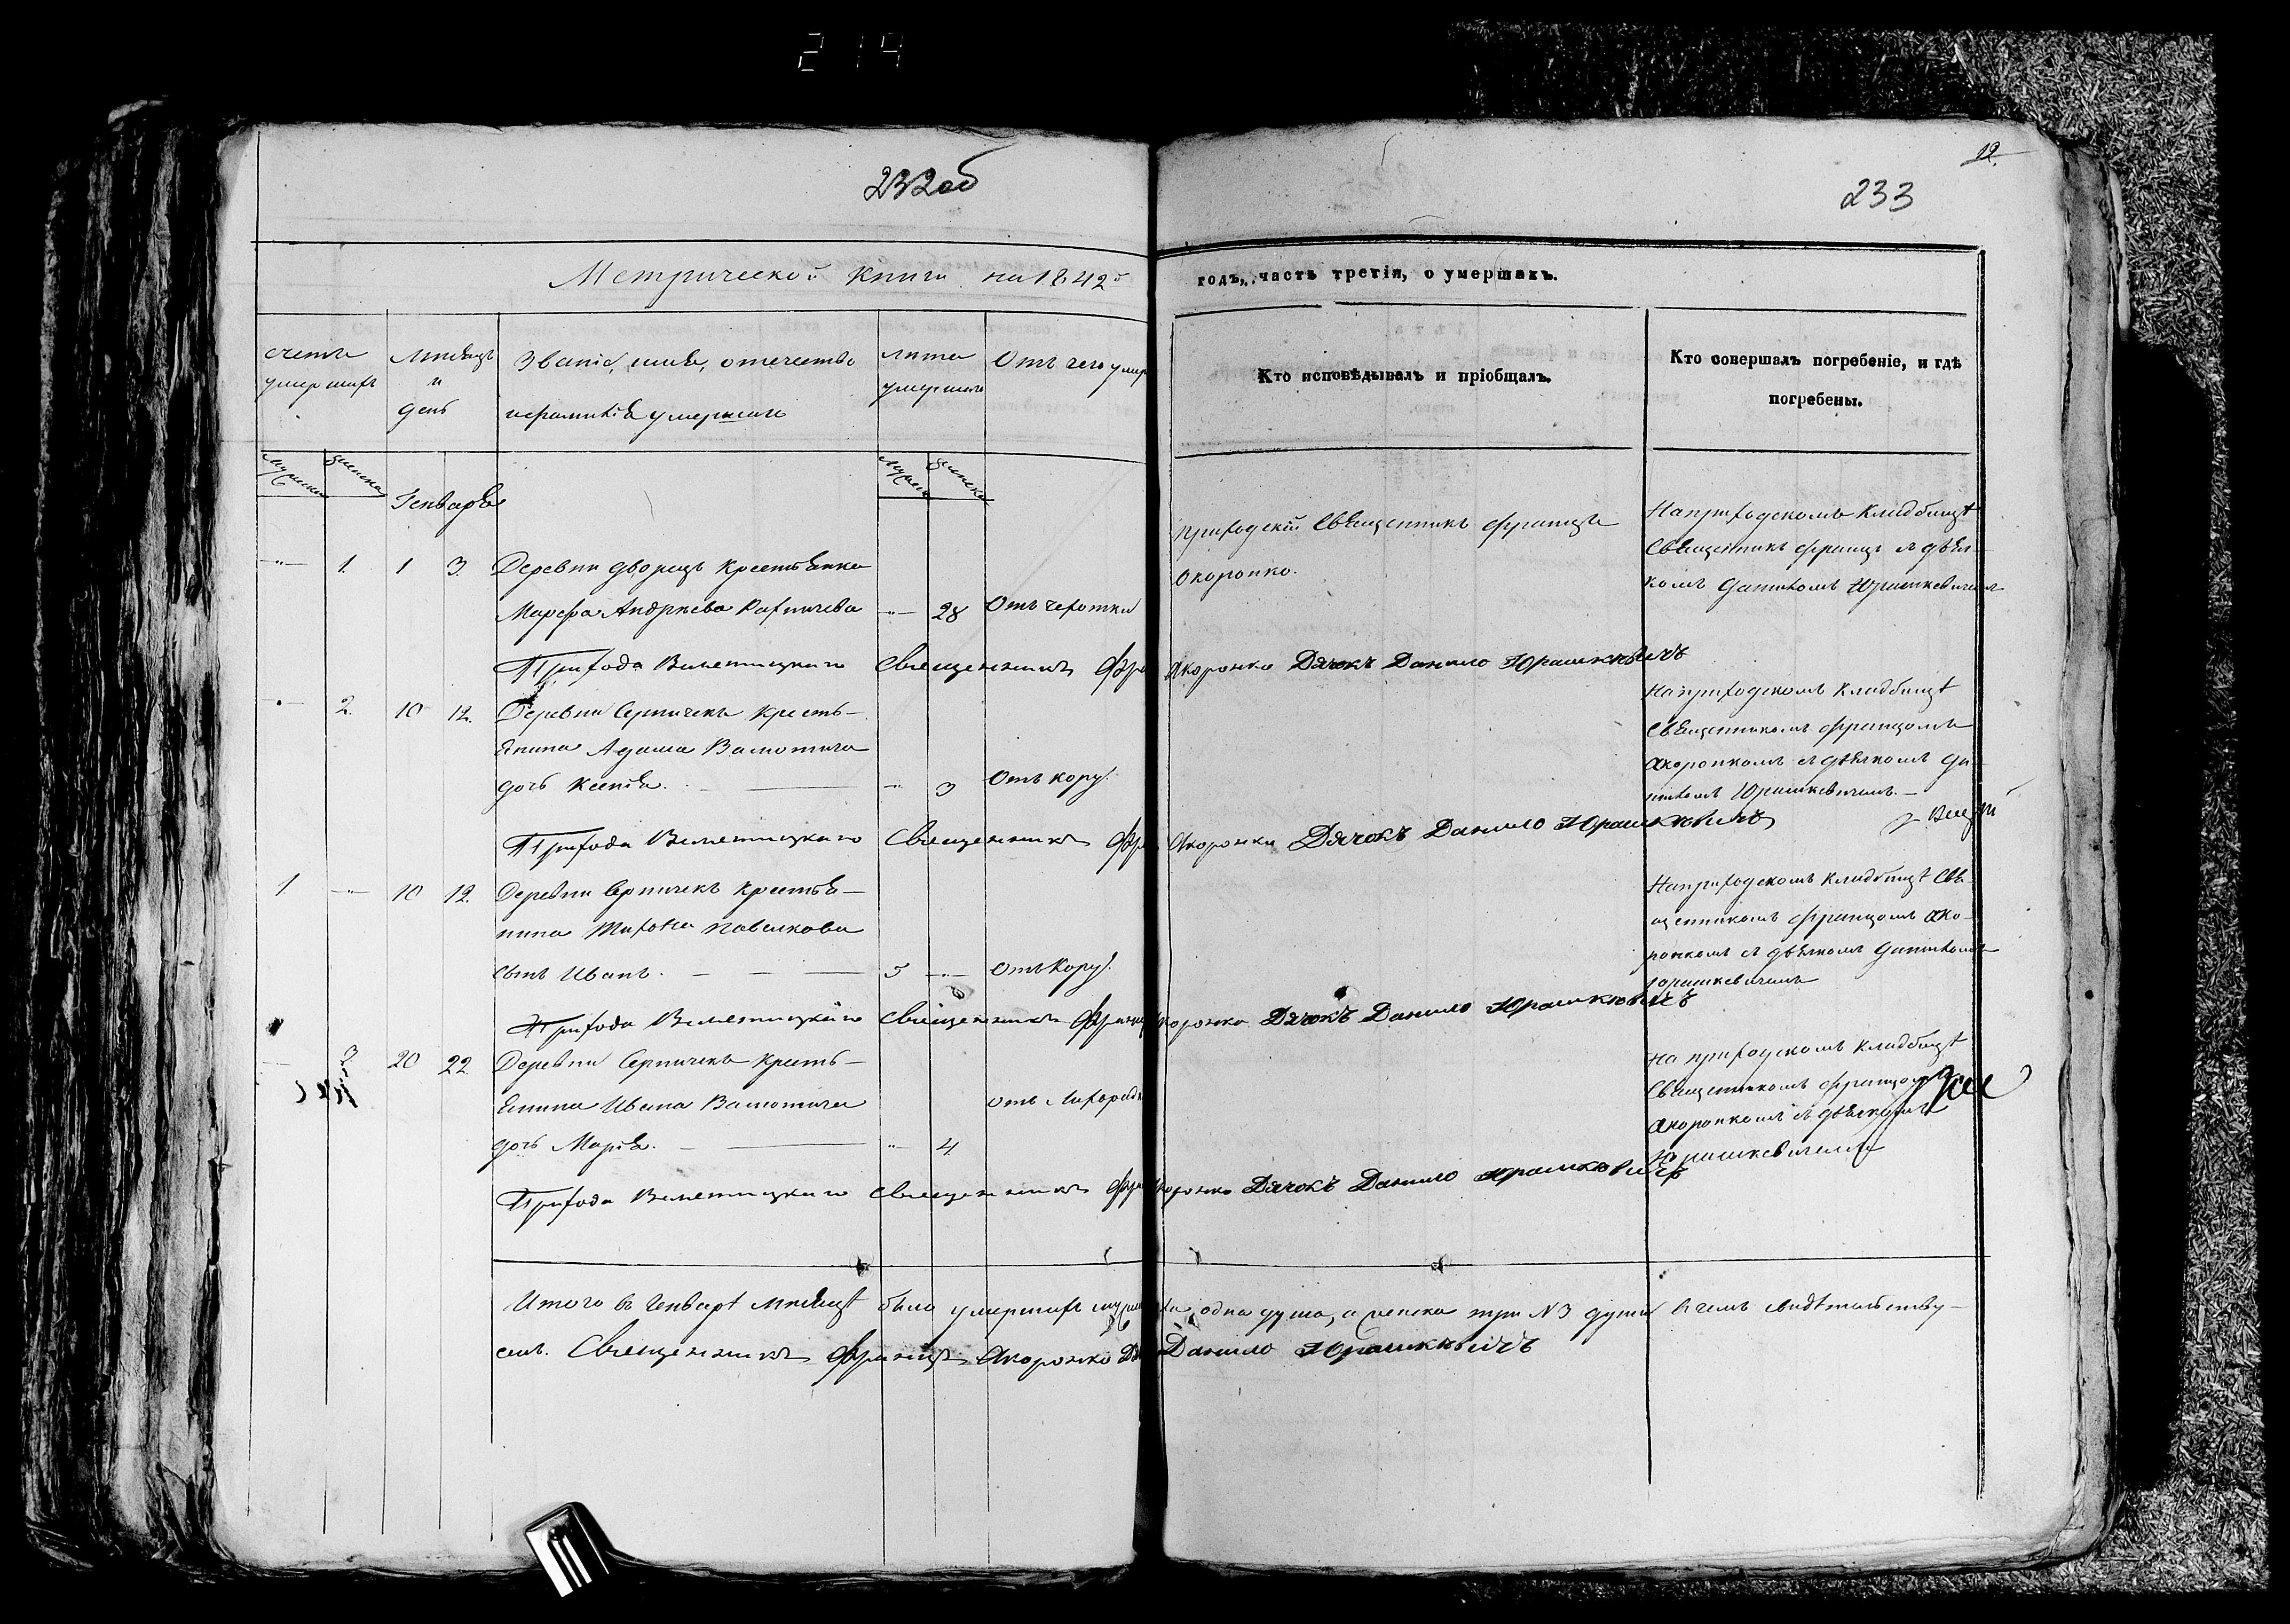 214
232об
12.
233
Метрической книги на 1842й
годъ, часть третія, о умершихъ.
счетъ умершихъ
Мѣсяцъ и день
Званіе, имя, отечество
и фамилія умершаго
лѣта умершаго
Отъ чего умер
Кто исповѣдывалъ и пріобщалъ.
Кто совершалъ погребеніе, и гдѣ
погребены.
мужеска
женска
мужеска
женска
Генваря
1. 1 3. Деревни Дворецъ крестьянка
Марфа Андрѣева
28 Отъ чахотки
Приходскій Священникъ Францъ
Окоронко.
На приходскомъ кладбищѣ
Священникъ Францъ съ дья-
комъ Даниломъ Юрашкевичемъ
Прихода Священникъ Фран Окоронко Дячокъ Данило Юрашкевичъ
2. 10 12. Деревни Серничекъ кресть-
янина Адама
дочь Ксенія. — 3 Отъ кору.
На приходскомъ кладбищѣ
Священникомъ Францомъ
Окоронкомъ съ дьякомъ Да-
ниломъ Юрашкевичемъ.—
Прихода Священникъ Фран Окоронко Дячокъ Данило Юрашкевичъ
1. 10 12. Деревни Серничекъ крестья-
нина
сынъ Иванъ. — — — 5 Отъ кору.
На приходскомъ кладбищѣ Свя-
щенникомъ Францомъ Око-
ронкомъ съ дьякомъ Даниломъ
Юрашкевичемъ
Прихода Священникъ Францъ Окоронко Дячокъ Данило Юрашкевичъ
3. 20 22. Деревни Серничекъ кресть-
янина Ивана
дочь Марія. — 4.
отъ лихорадк
На приходскомъ кладбищѣ
Священникомъ Францомъ
Окоронкомъ съ дьякомъ
Юрашкевичемъ
Прихода Священникъ Фран Окоронко Дячокъ Данило Юрашкевичъ
Итого въ Генварѣ мѣсяцѣ было умершихъ мужеска одна душа, а женска три N 3 души въ чемъ свидѣтельству-
емъ. Священникъ Францъ Окоронко Дя Данило Юрашкевичъ